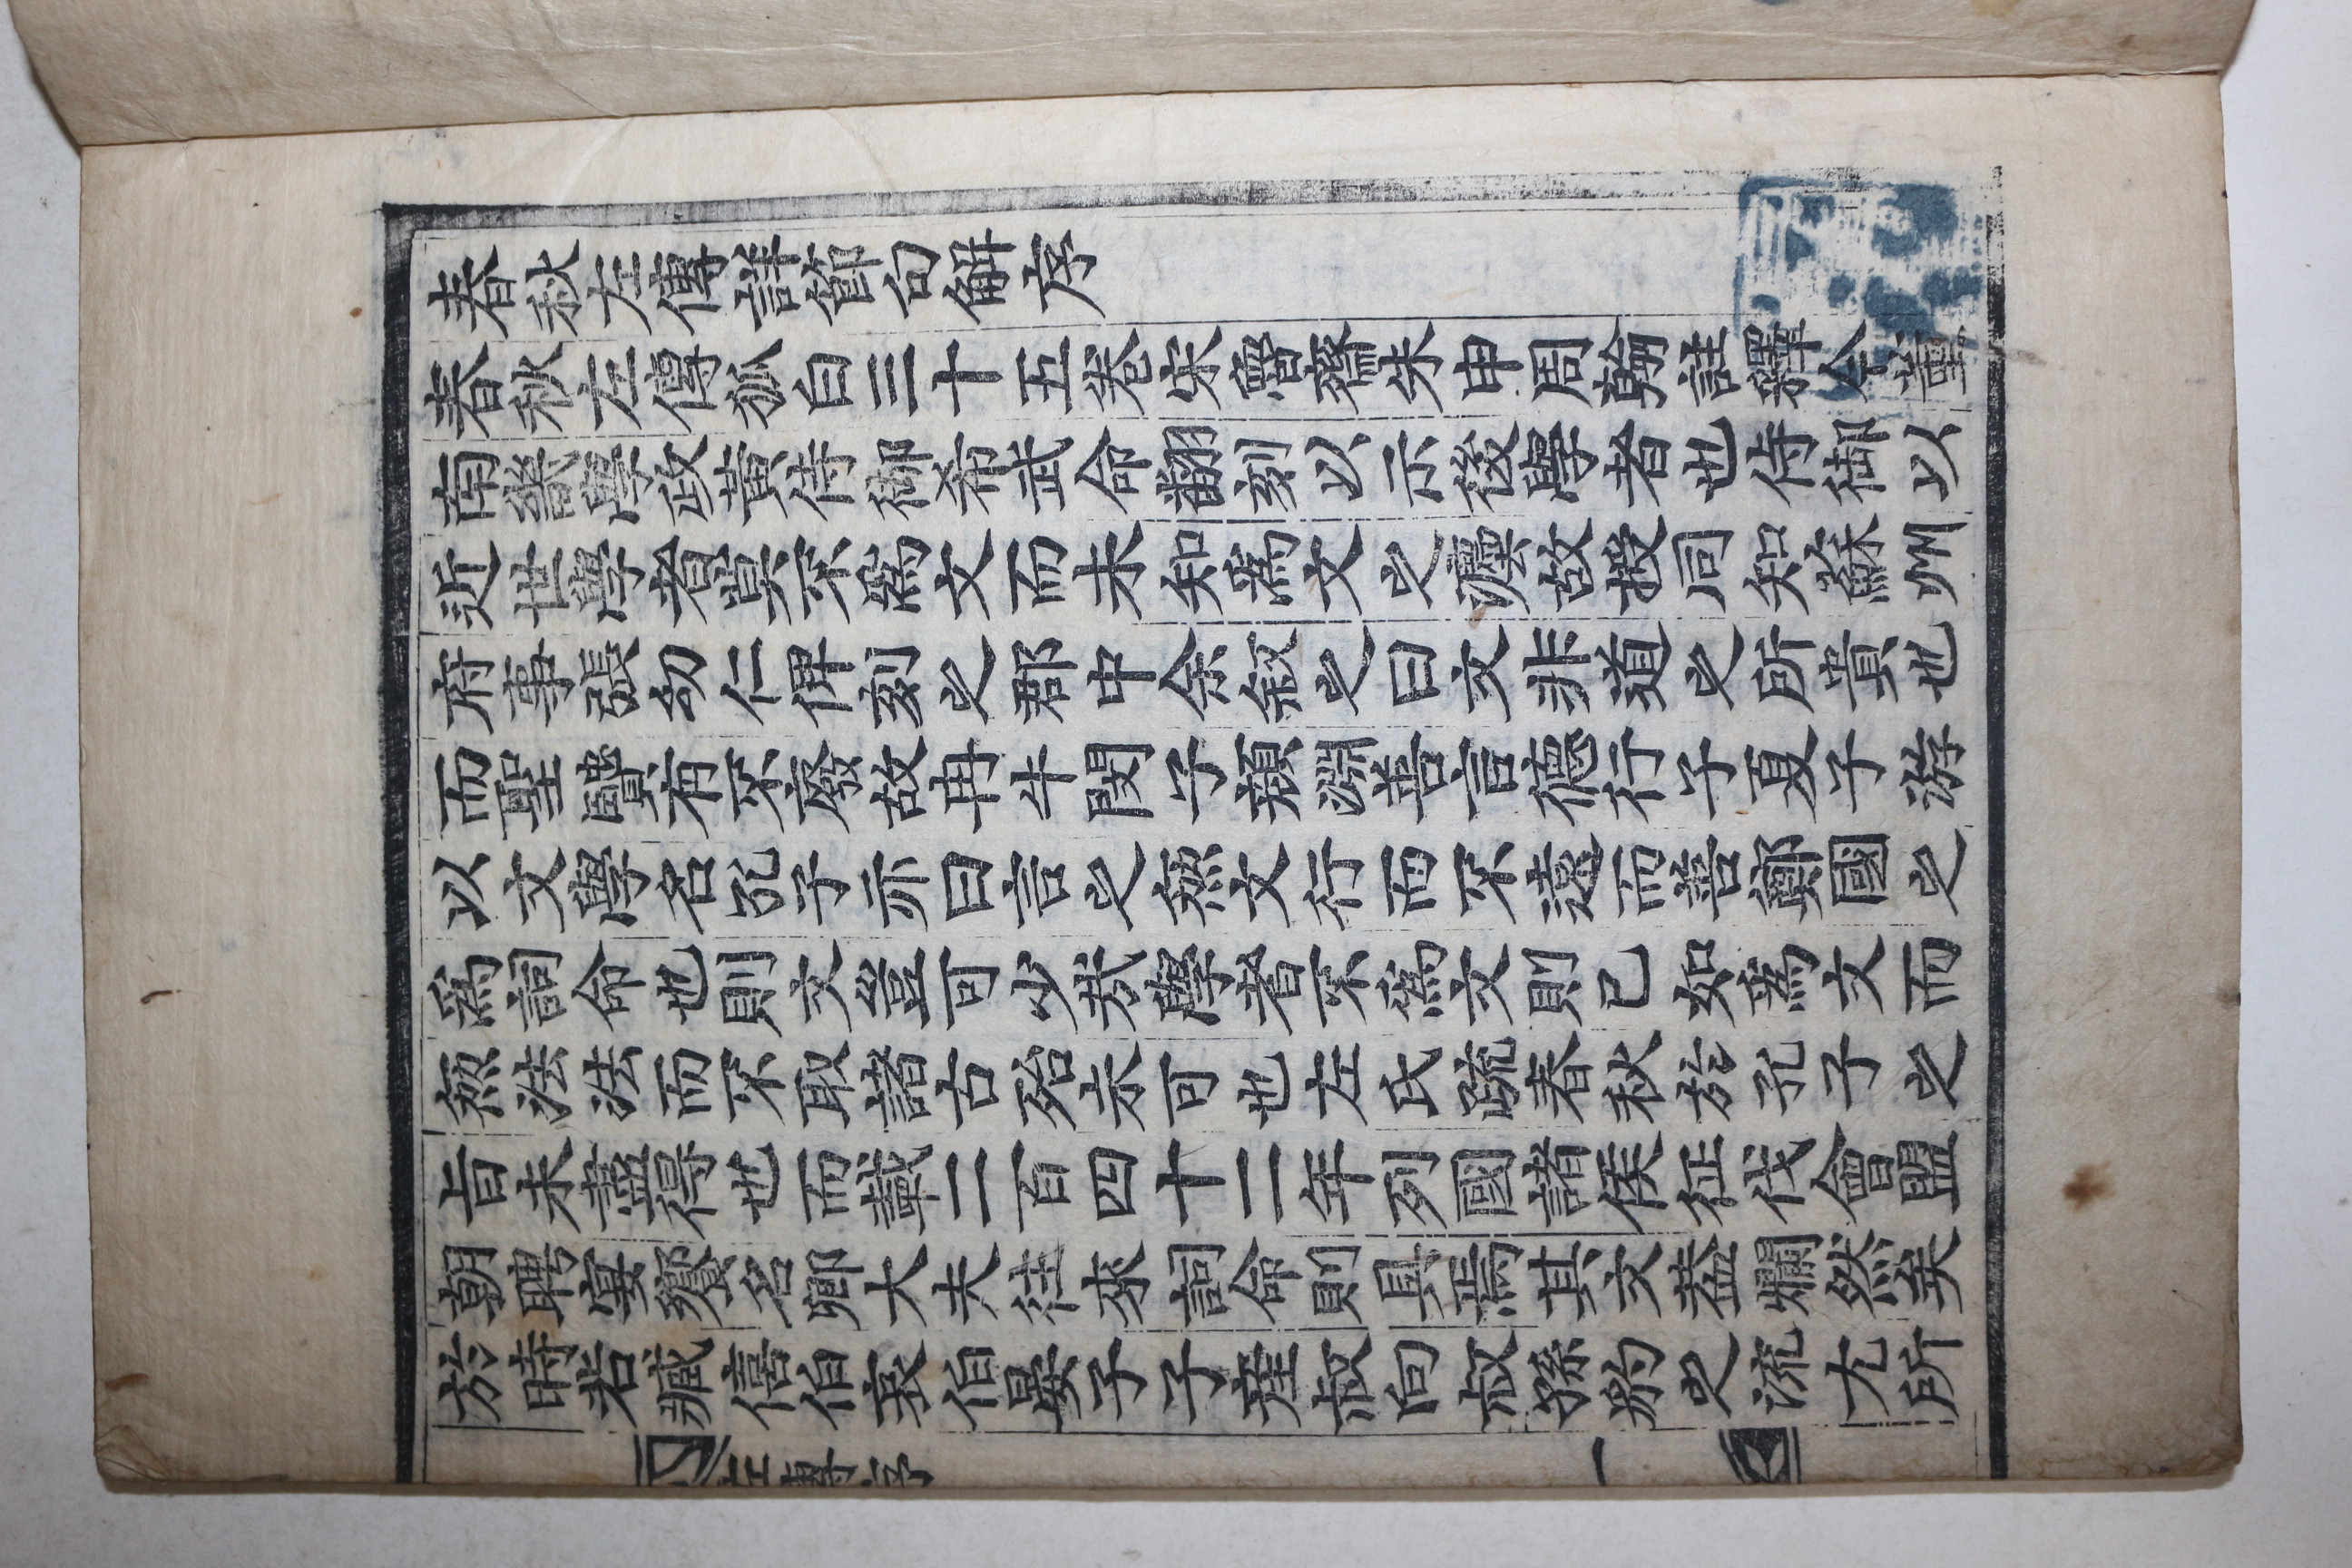 春秋左傳詳節句解序
春秋左傳狐白三十五卷宋魯齋朱申周翰註釋今董
南畿學政黃侍御希武命翻刻以示後學者也侍御以
近世學者莫不爲文而未知爲文之灋故授同知蘇州
府事張幼仁俾刻之郡中余叙之曰文非道之所貴也
而聖賢有不廢故冉牛閔子顔淵善言德行子夏子游
以文學名孔子亦曰言之無文行而不遠而善鄭國之
爲詞命也則文豈可少哉學者不爲文則已如爲文而
無法法而不取諸古殆未可也左氏疏春秋於孔子之
旨未盡得也而載二百四十二年列國諸侯征伐會盟
朝聘宴饗名卿大夫往來詞命則具焉其文葢爛然矣
於時若臧僖伯哀伯晏子子產叔向叔孫豹之流尤所
左傳序
一